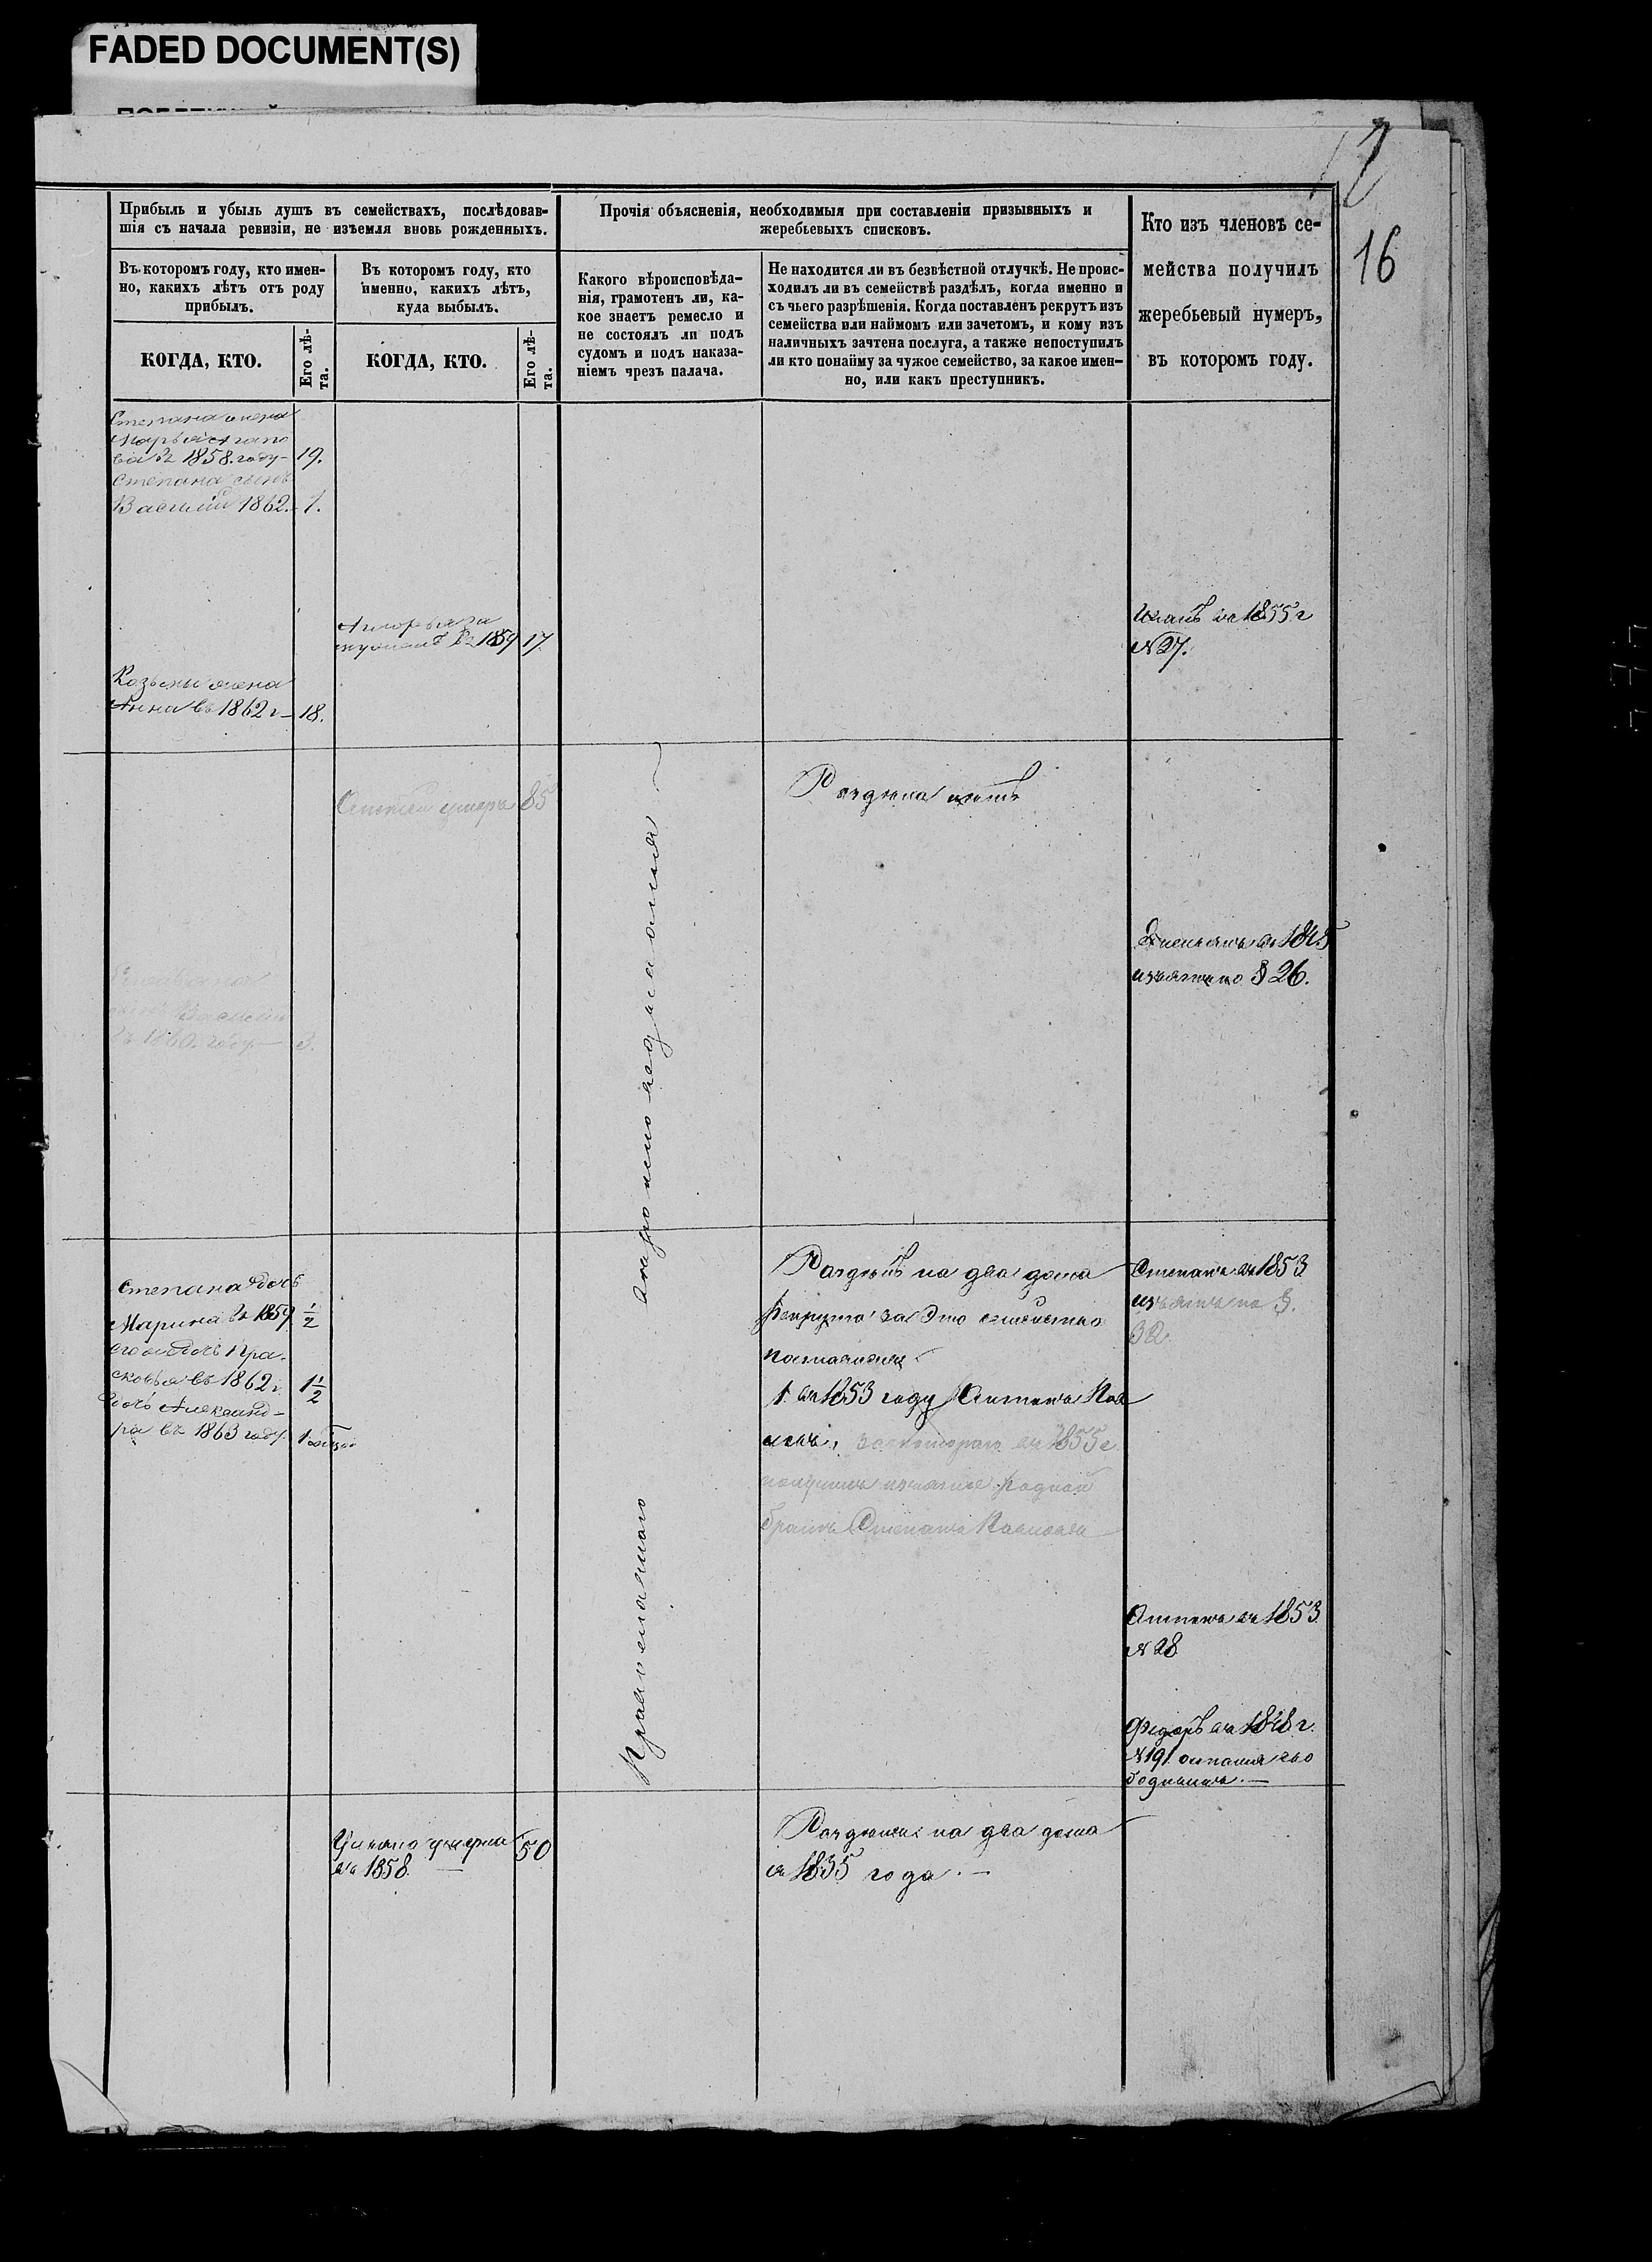 FADED DOCUMENT(S)
12
16
Прибыль и убыль душъ въ семействахъ, послѣдовав-
шія съ начала ревизіи, не изъемля вновь рожденныхъ.
Въ которомъ году, кто имен-
но, какихъ лѣтъ отъ роду
прибылъ.
КОГДА, КТО.
Его лѣ-
та.
Въ которомъ году, кто
именно, какихъ лѣтъ,
куда выбылъ.
КОГДА, КТО.
Его лѣ-
та.
Прочія объясненія, необходимыя при составленіи призывныхъ и
жеребьевыхъ списковъ.
Какого вѣроисповѣда-
нія, грамотенъ ли, ка-
кое знаетъ ремесло и
не состоялъ ли подъ
судомъ и подъ наказа-
ніемъ чрезъ палача.
Не находится ли въ безвѣстной отлучкѣ. Не проис-
ходилъ ли въ семействѣ раздѣлъ, когда именно и
съ чьего разрѣшенія. Когда поставленъ рекрутъ изъ
семейства или наймомъ или зачетомъ, и кому изъ
наличныхъ зачтена послуга, а также непоступилъ
ли кто понайму за чужое семейство, за какое имен-
но, или какъ преступникъ.
Кто изъ членовъ се-
мейства получилъ
жеребьевый нумеръ,
въ которомъ году.
Степана жена
Марья
въ 1858. году 19.
Степана сынъ
Василий 1862. 1.
въ 1859 17.
въ 1855 г
№ 27.
Козьмы жена
Анна въ 1862 г 18.
умеръ 85
Раздела нетъ
въ 1845
изъятъ по § 26.
сынъ Василий
въ 1860. году 3.
Православнаго
Степана дочь
Марина въ 1859 1/2
его дочь Пра-
сковья въ 1862 г. 1 1/2
дочь Александ-
ра въ 1863 году.
Раздѣлъ на два дома
рекрута за это семейство
поставлены
1. въ 1853 году
за котораго въ 1855 г.
получилъ изъятіе родной
братъ Степанъ Павловъ
Степанъ въ 1853
изъятъ по §.
32.
въ 1853
№ 28
Федоръ въ 1848 г.
№ 191 остался сво
боднымъ.
умерла 50
въ 1858.
на два дома
съ 1835 года.